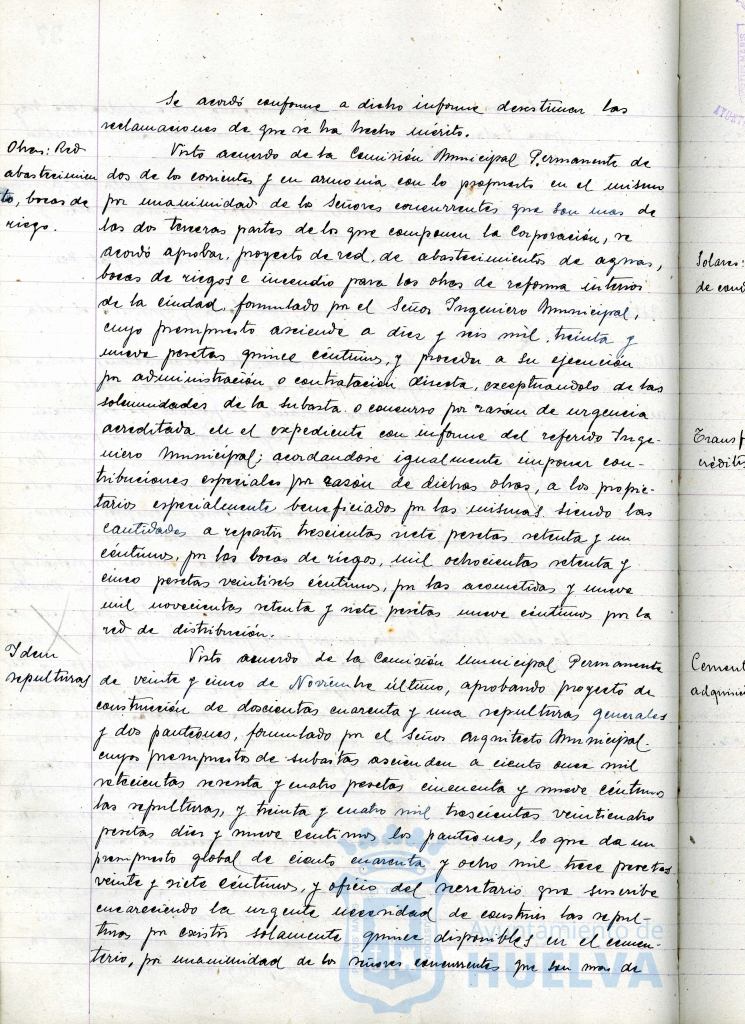 Se acordó conforme a dicho informe desestimar las
reclamaciones de que se ha hecho mérito.
Obras: Red
abastecimien
to, bocas de
riego.
Visto acuerdo de la Comisión Municipal Permanente de
dos de los corrientes y en armonía con lo propuesto en el mismo
por unanimidad de los Señores concurrentes que son mas de
las dos terceras partes de los que componen la Corporación, se
acordó aprobar, proyecto de red, de abastecimientos de aguas,
bocas de riegos e incendio para las obras de reforma interior
de la ciudad, formulado por el Señor Ingeniero Municipal,
cuyo presupuesto asciende a diez y seis mil, treinta y
nueve pesetas quince céntimos, y proceder a su ejecución
por administración o contratación directa, exceptuandolo de las
solemnidades de la subasta o concurso por razón de urgencia
acreditada en el expediente con informe del referido Inge-
niero Municipal; acordandose igualmente imponer con-
tribuciones especiales por razón de dichas obras, a los propie-
tarios especialmente beneficiados por las mismas siendo las
cantidades a repartir trescientas siete pesetas setenta y un
céntimos, por las bocas de riegos, mil ochocientas setenta y
cinco pesetas veintiseis céntimos, por las acometidas y nueve
mil novecientas setenta y siete pesetas nueve céntimos por la
red de distribución.
Idem
sepulturas
Visto acuerdo de la Comisión Municipal Permanente
de veinte y cinco de Noviembre último, aprobando proyecto de
construcción de doscientas cuarenta y una sepulturas generales
y dos panteones, formulado por el Señor Arquitecto Municipal.
cuyos presupuestos de subastas ascienden a ciento once mil
setecientas sesenta y cuatro pesetas cincuenta y nueve céntimos
las sepulturas, y treinta y cuatro mil trescientas veinticuatro
pesetas diez y nueve centimos los panteones, lo que da un
presupuesto global de ciento cuarenta y ocho mil trece pesetas
veinte y siete céntimos, y oficio del secretario que suscribe
encareciendo la urgente necesidad de construir las sepul-
turas por existir solamente quince disponibles en el cemen-
terio, por unanimidad de los señores concurrentes que son mas de
Ayuntamiento de
HUELVA
Solares:
de
Transf
crédito
Cement
adquisi